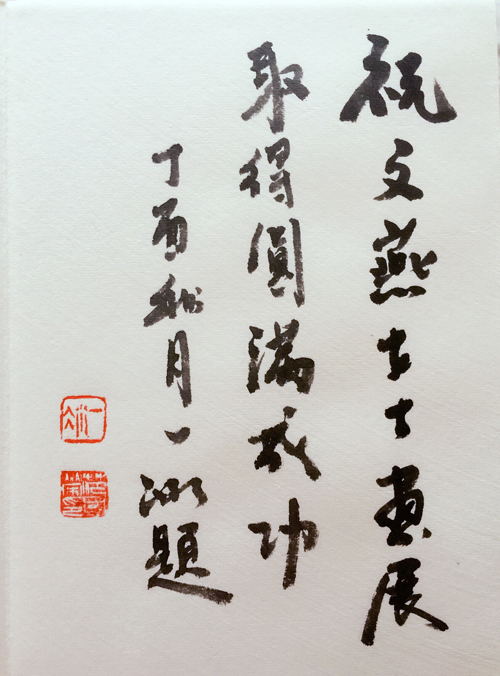 祝文燕女士畫展
取得圓滿成功
丁酉秋月一題